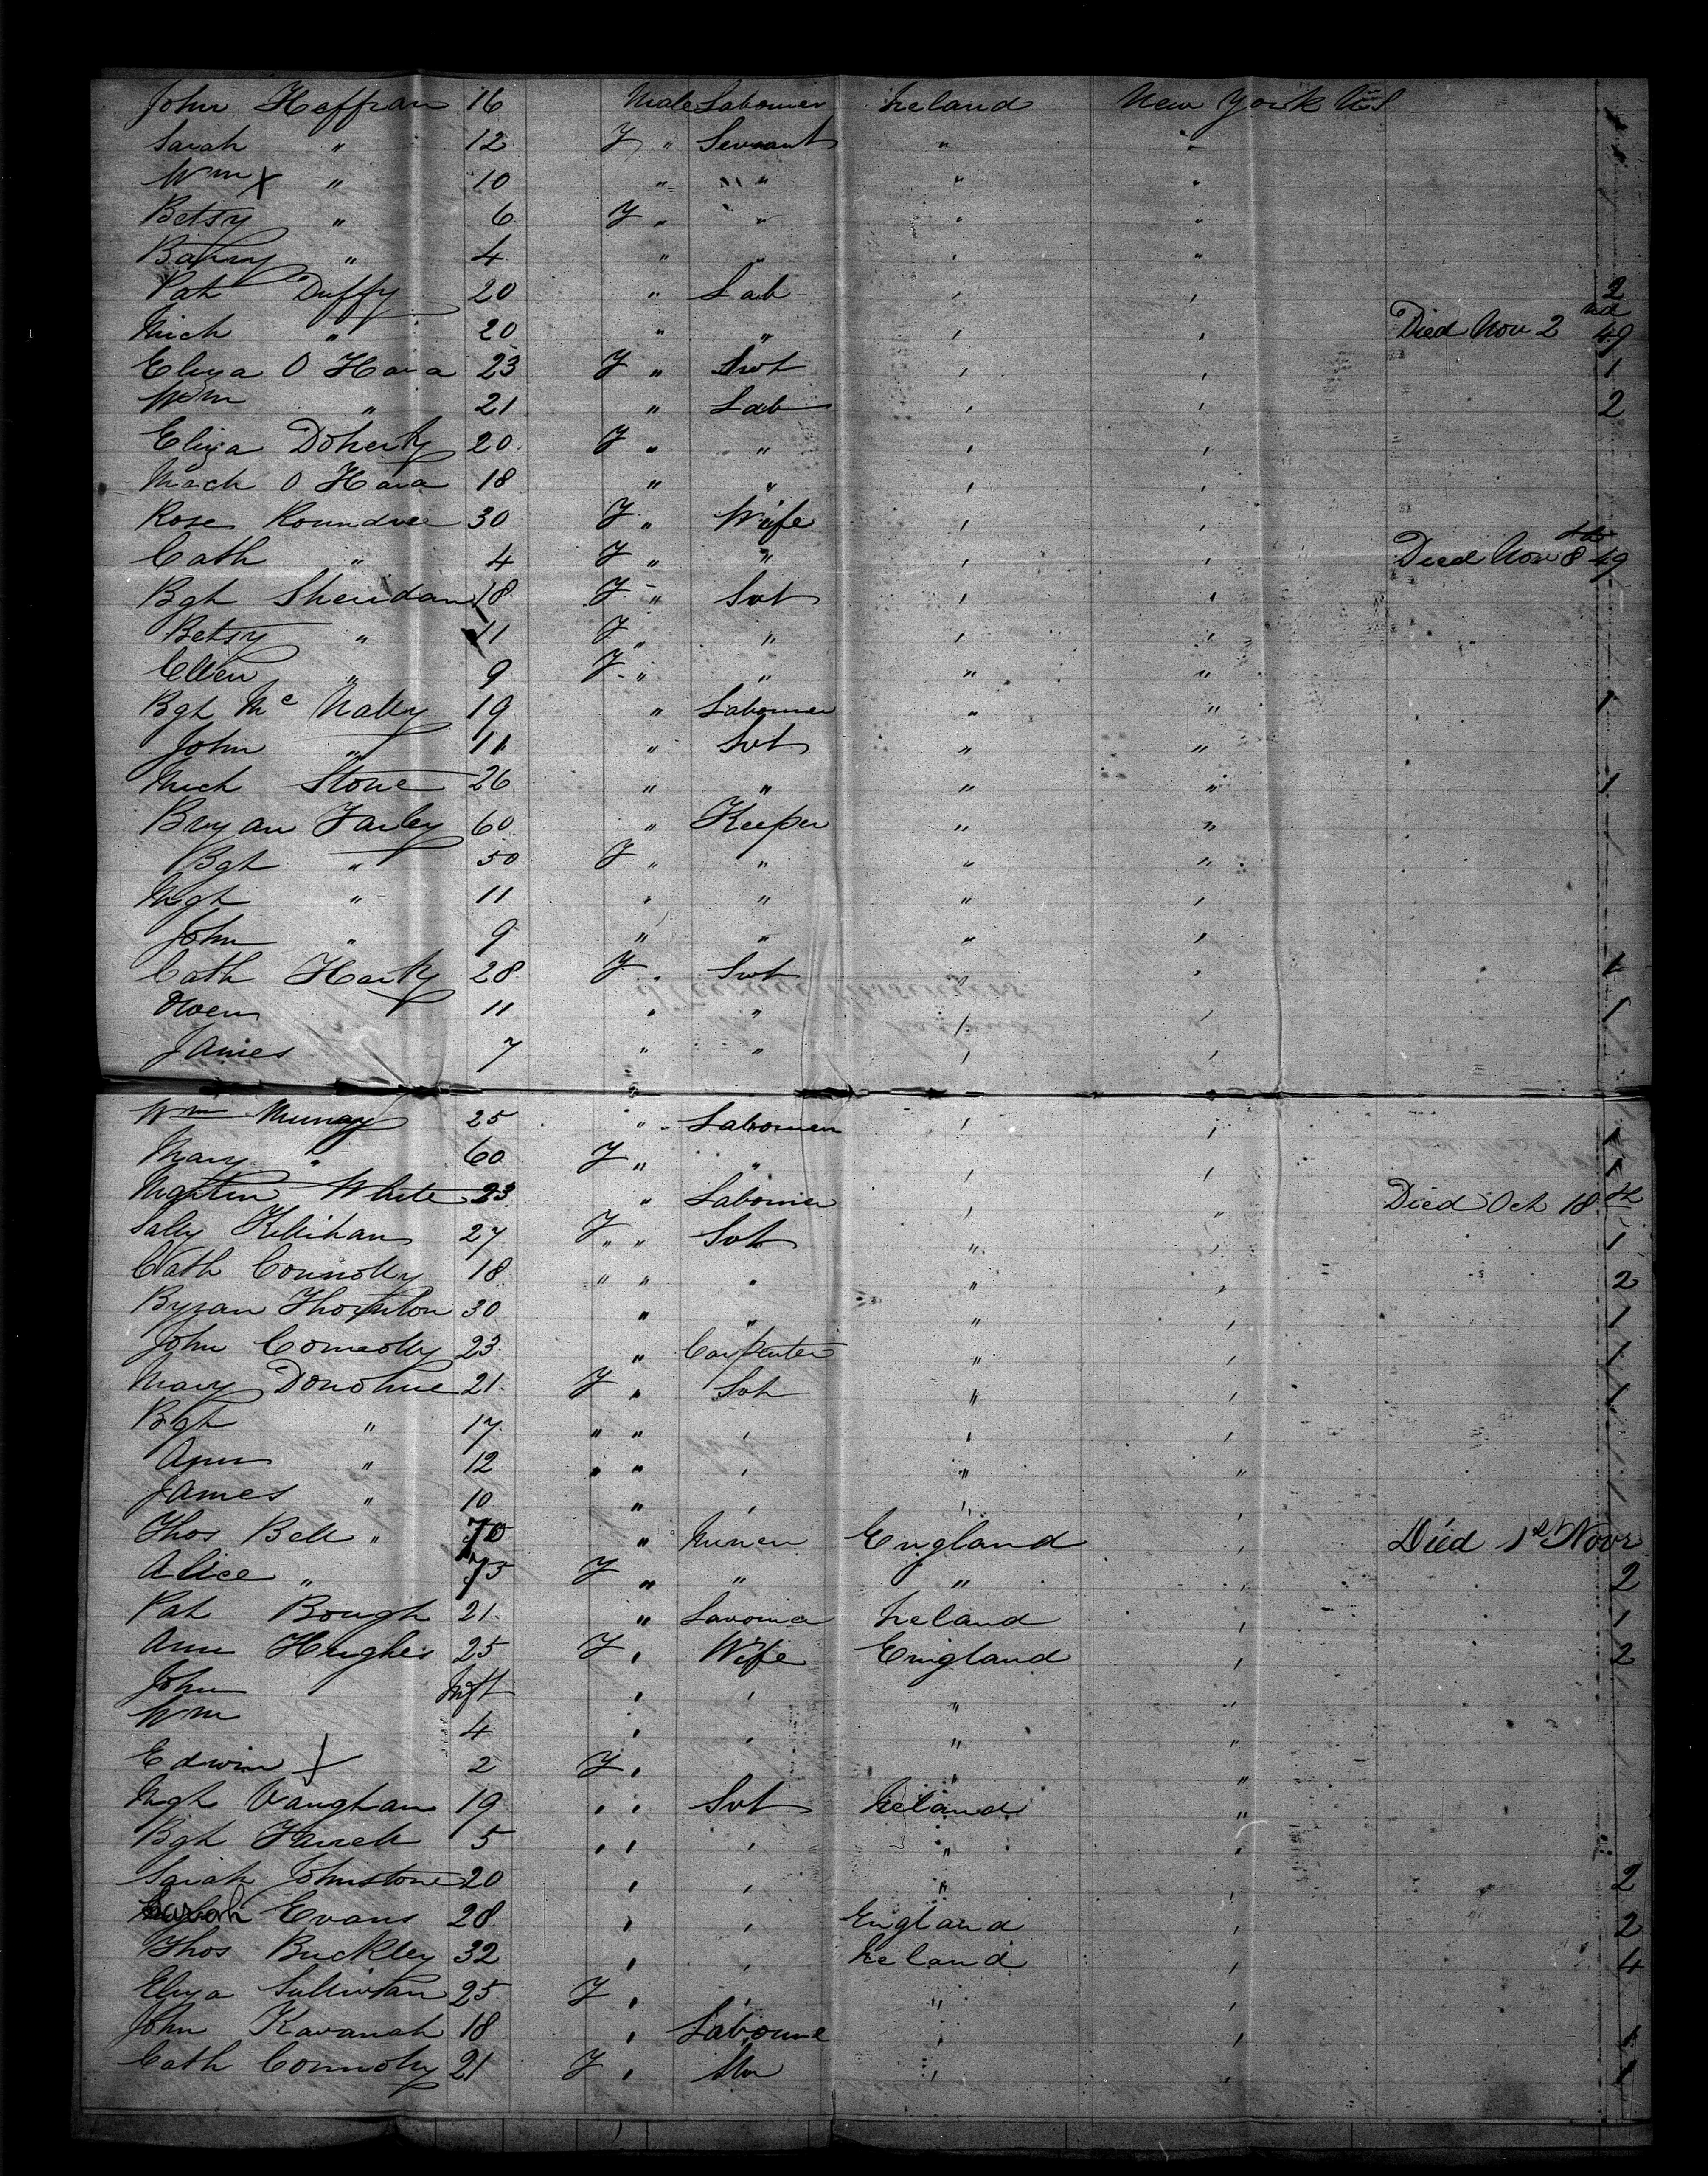 John Heffran 16 Male Labourer Ireland New York US
Sarah " 12 F " Servant " "
Wm x " 10 " " " "
Betsy " 6 F " " " "
Barny " 4 " " " "
Pat Duffy 20 " Lab " " 2
Mich " 20 " " " " Died Nov 2nd 49
Eliza O Hara 23 F " Svt " " 1
Wm " 21 " Lab " " 2
Eliza Doherty 20 F " " " "
Mich O Hara 18 " " " "
Rose Roundree 30 F " Wife " "
Cath " 4 F " " " " Died Nov 8th 49
Bgt Sheridan 18 F " Svt " "
Betsy " 11 F " " " "
Ellen " 9 F " " " "
Bgt Mc Nally 19 " Labourer " " 1
John " 11 " Svt " "
Mich Stone 26 " " " " 1
Bryan Farley 60 " Keeper " "
Bgt " 50 F " " " "
Mgt " 11 " " " "
John " 9 " " " "
Cath Harty 28 F " Svt " " 1
Owen 11 " " " " 1
James 7 " " " "
Wm Murray 25 " Labourer " " 1
Mary " 60 F " " " " 1
Martin White 23 " Labourer " " Died Oct 18th
Sally Killihan 27 F " " Svt " " 1
Cath Connolly 18 " " " " " 2
Byran Thornton 30 " " " " 1
John Connolly 23 " Carpenter " " 1
Mary Donohue 21 F " Svt " " 1
Bgt " 17 " " " " "
Ann " 12 " " " " "
James " 10 " " " "
Thos Bell " 70 " Miner England " Died 1st Novr
Alice " 75 F " " " " 2
Pat Bough 21 " Labourer Ireland " 1
Ann Hughes 25 F " Wife England " 2
John Inft " " " "
Wm 4 " " " "
Edwin x 2 F " " "
Mgt Vaughan 19 " " Svt Ireland "
Bgt 5 " " " " "
Sarah Johnstone 20 " " " " 2
Sarah Evans 28 " " England " 2
Thos Buckley 32 " " Ireland " 4
Eliza Sullivan 25 F " " " "
John Kavanah 18 " Laboure " " 1
Cath Connolly 21 F " " " 1